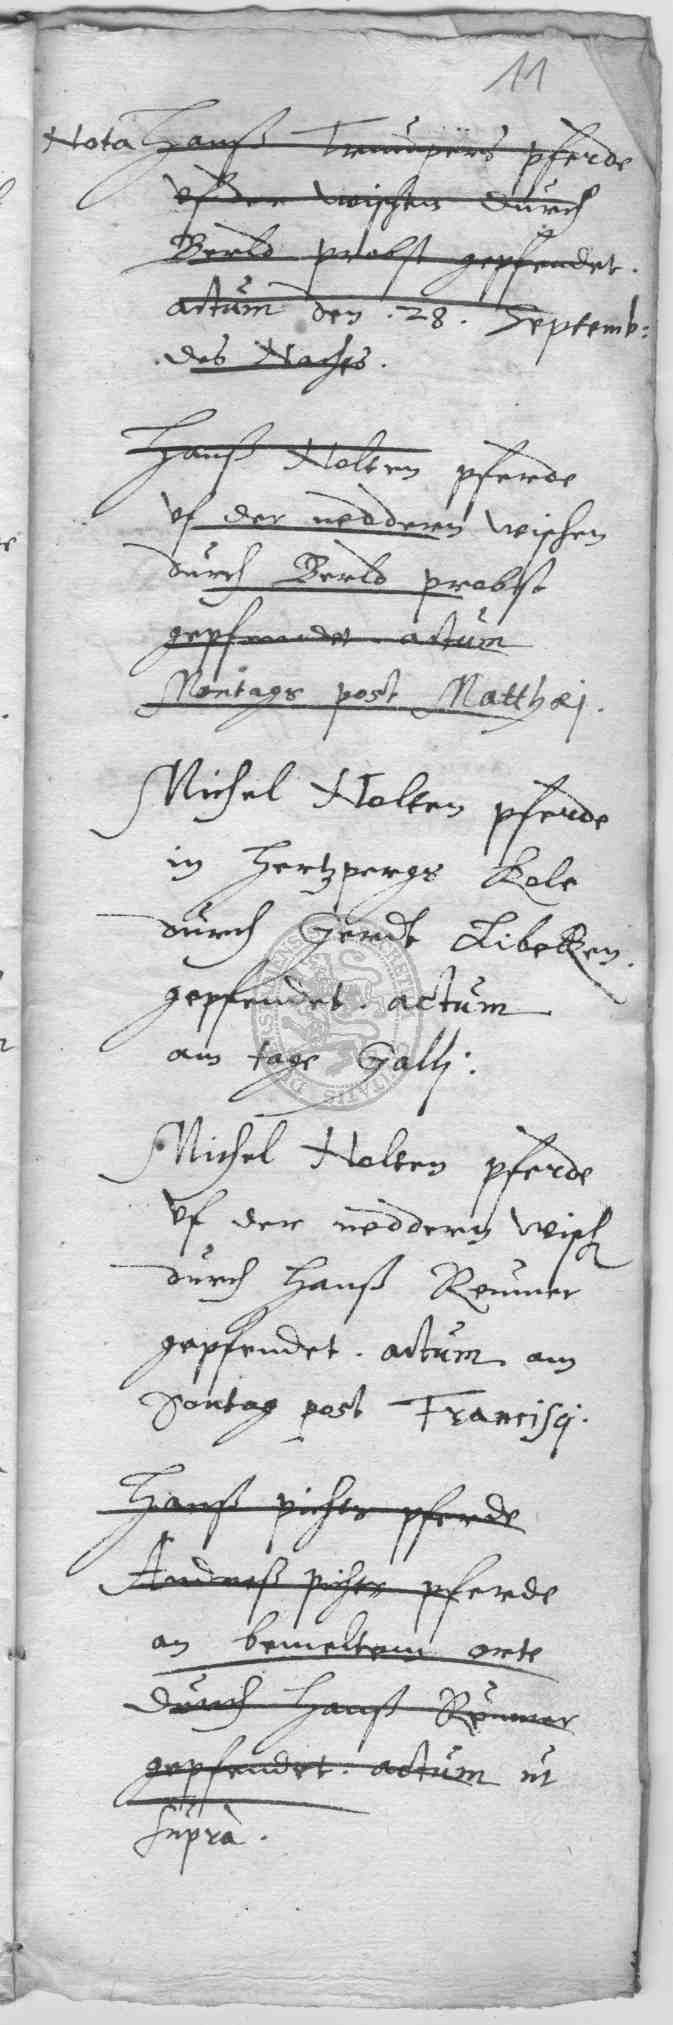 11
Nota Hanß Trumpers pferde
uf der wischen durch
Berld probst gepfendet.
actum den .28. Septemb:
des Nachts.
Hanß Nolten pferde
uf der nedderen wischen
durch Berld probst
gepfendet actum
Montags post Matthæj.
Michel Nolten pferde
in Hertzpergs Kole
durch Gerdt Libekken
gepfendet. actum
am tage Gallj.
Michel Nolten pferde
uf der neddern wisch
durch Hanß Reumer
gepfendet. actum am
Sontag post Francisçj.
Hanß pichts pferde
Andreß pichts pferde
an bemeltem orte
durch Hanß Reumer
gepfendet. actum ut
suprà.